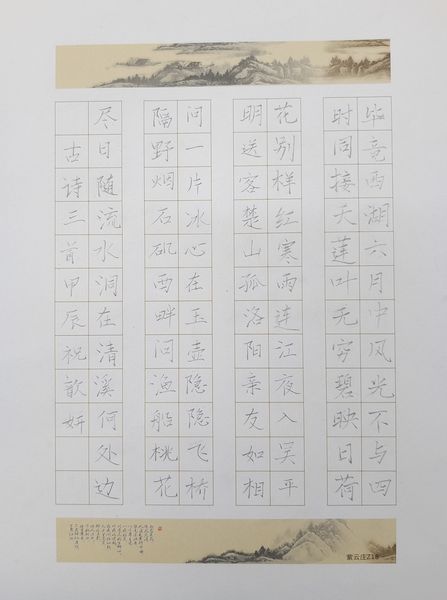 毕竟西湖六月中风光不与四
时同接天莲叶无穷碧映日荷
花别样红寒雨连江夜入吴平
明送客楚山孤洛阳亲友如相
问一片冰心在玉壶隐隐飞桥
隔野烟石矶西畔问渔船桃花
尽日随流水洞在清溪何处边
古诗三首甲辰祝歆妍
紫云庄Z18